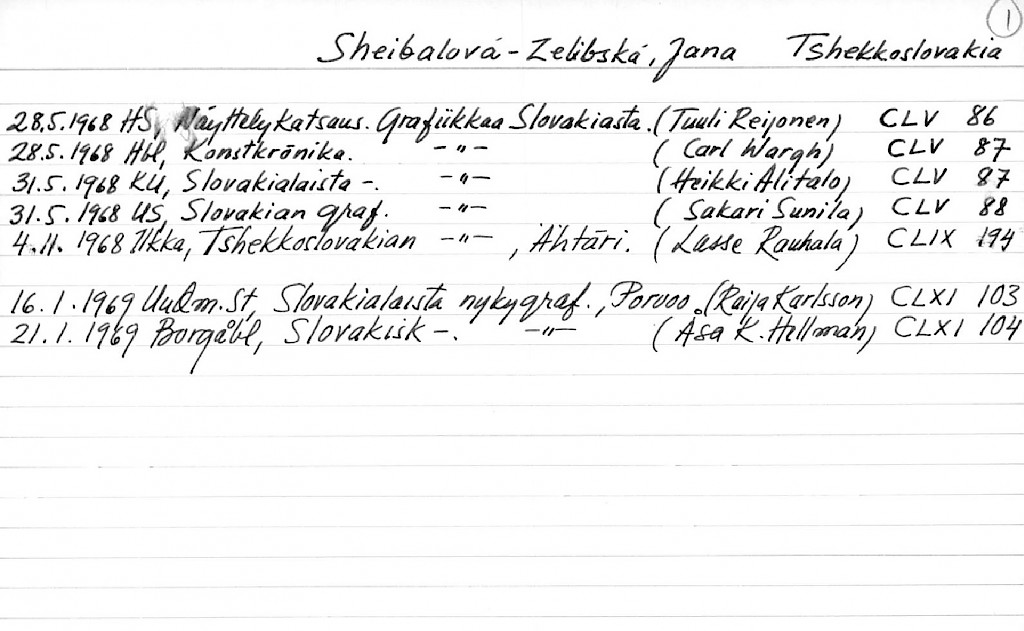 1
Sheibalová-Zelibská, Jana Tshekkoslovakia
28.5.1968 HS, Näyttelykatsaus. Grafiikkaa Slovakiasta. (Tuuli Reijonen) CLV 86
28.5.1968 Hbl, Konstkrönika. -"- (Carl Wargh) CLV 87
31.5.1968 KU, Slovakialaista -. -"- (Heikki Alitalo) CLV 87
31.5.1968 US, Slovakian graf. -"- (Sakari Sunila) CLV 88
4.11.1968 Ilkka, Tshekkoslovakian -"-, Ähtäri. (Lasse Rauhala) CLIX 194
16.1.1969 Uudm.St, Slovakialaista nykygraf., Porvoo. (Raija Karlsson) CLXI 103
21.1.1969 Borgåbl, Slovakisk -. -"- (Åsa K. Hellman) CLXI 104